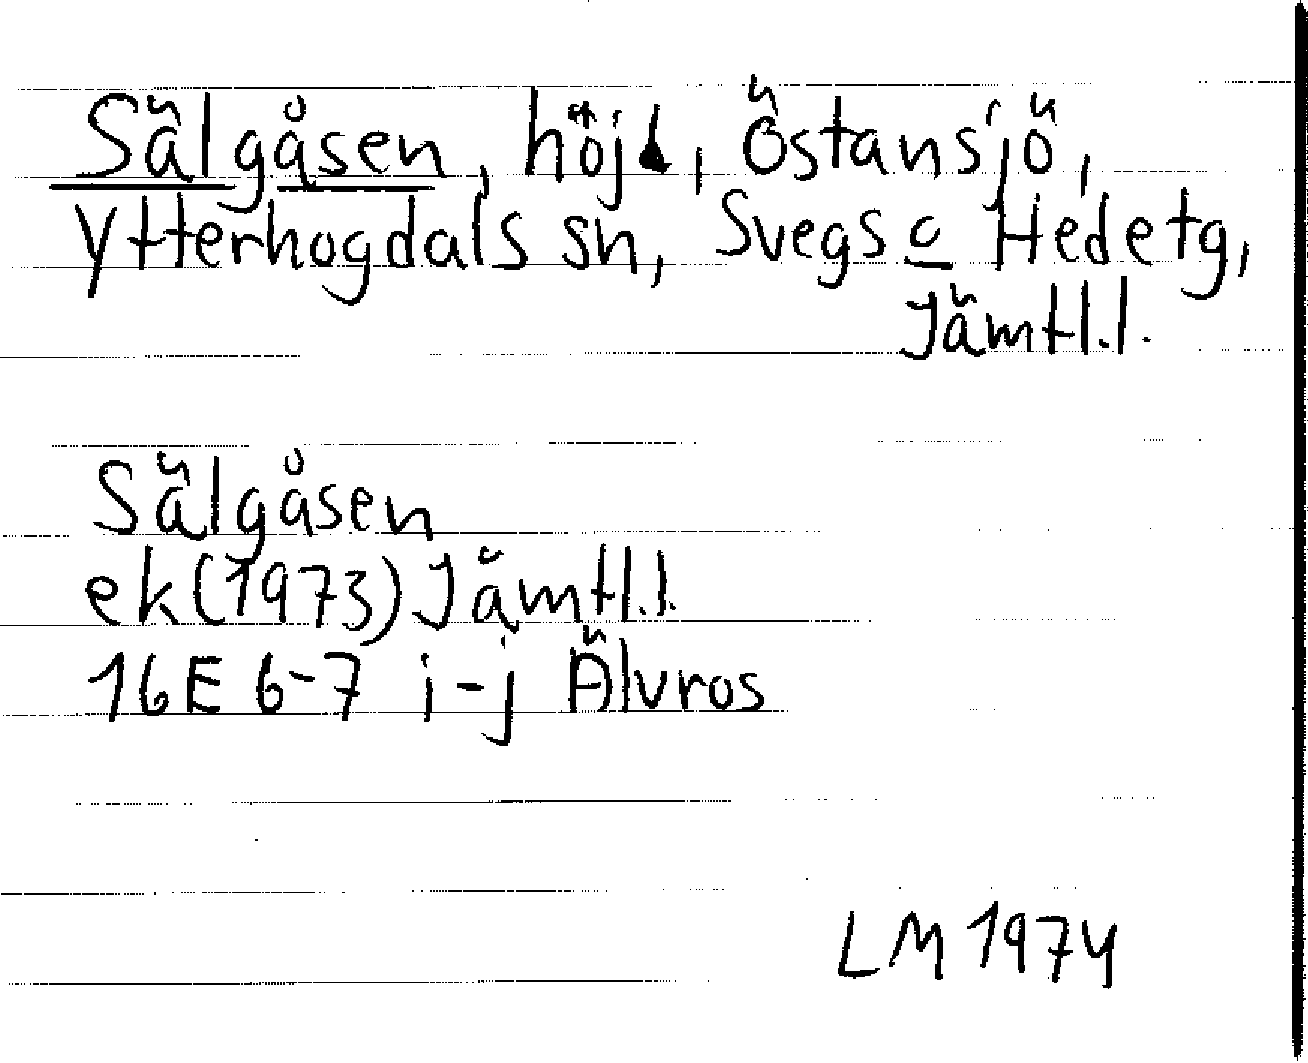 Sälgåsen, höjd, Östansjö,
Ytterhogdals sn, Svegs o Hedetg,
Jämtl.l.
Sälgåsen
ek(1973) Jämtl.l.
16E 6-7 i-j Älvros
LM 1974